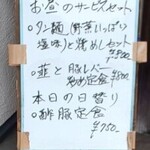 お昼のサービスセット
○タン麺(野菜いっぱい
塩味)と鶏めしセット
¥800
○韮と豚レバー
炒め定食 ¥800
本日の日替り
○酢豚定食
¥750